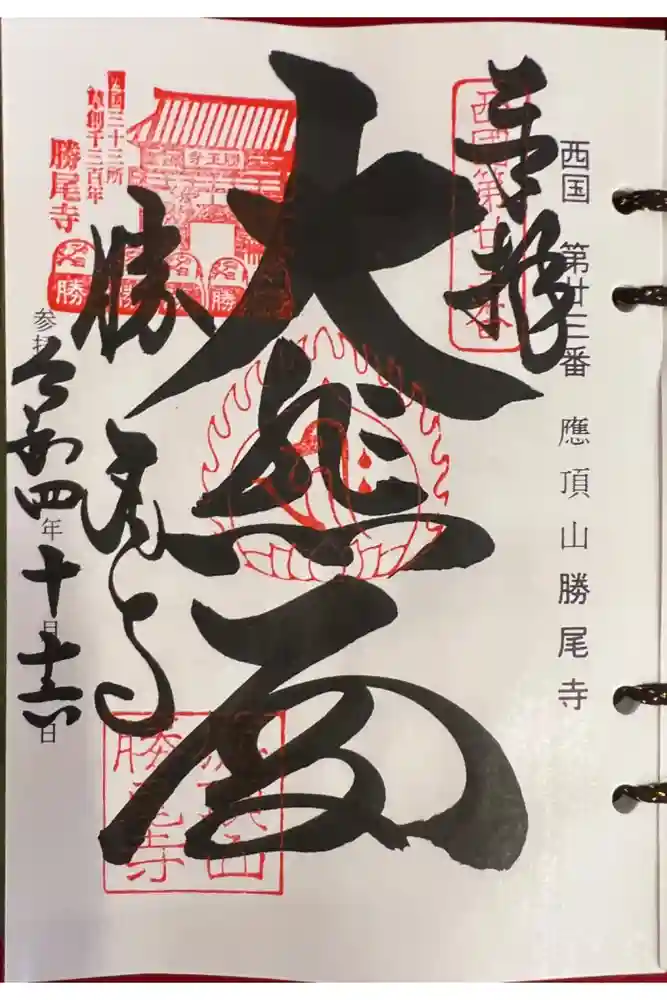 西国 第廿三番 應頂山勝尾寺
奉拝
西国第廿三番
大悲閣
西国三十三所
草創千三百年
勝尾寺
勝
勝尾寺
應頂山
勝尾寺
参拝
令和四年十月十六日